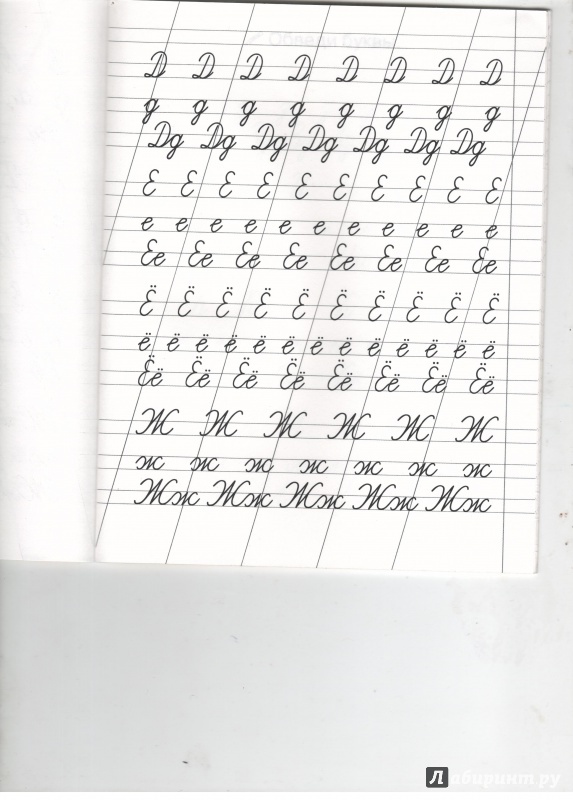 Обведи буквы
Д Д Д Д Д Д Д Д
д д д д д д д д
Дд Дд Дд Дд Дд Дд Дд
Е Е Е Е Е Е Е Е Е Е
е е е е е е е е е е е
Ее Ее Ее Ее Ее Ее Ее Ее
Ё Ё Ё Ё Ё Ё Ё Ё Ё Ё
ё ё ё ё ё ё ё ё ё ё ё ё ё
Ёё Ёё Ёё Ёё Ёё Ёё Ёё Ёё
Ж Ж Ж Ж Ж Ж
ж ж ж ж ж ж ж
Жж Жж Жж Жж Жж
Лабиринт.ру